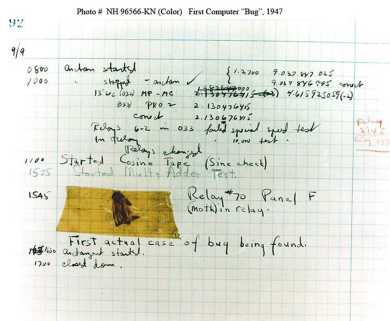 Photo # NH 96566-KN (Color) First Computer "Bug", 1947
92
9/9
0800 Antan started
1000 " stopped - antan ✓ { 1.2700 9.037 847 025
9.037 846 995 correct
13" UC (032) MP - MC 2.130476415 (-3) 4.615925059 (-2)
(033) PRO 2 2.130476415
correct 2.130676415
Relays 6-2 in 033 failed special speed test
in Relay " 10.000 test.
Relays changed
1100 Started Cosine Tape (Sine check)
1525 Started Mult + Adder Test.
1545 Relay #70 Panel F
(moth) in relay.
First actual case of bug being found.
1630 antangent started.
1700 closed down.
Relay